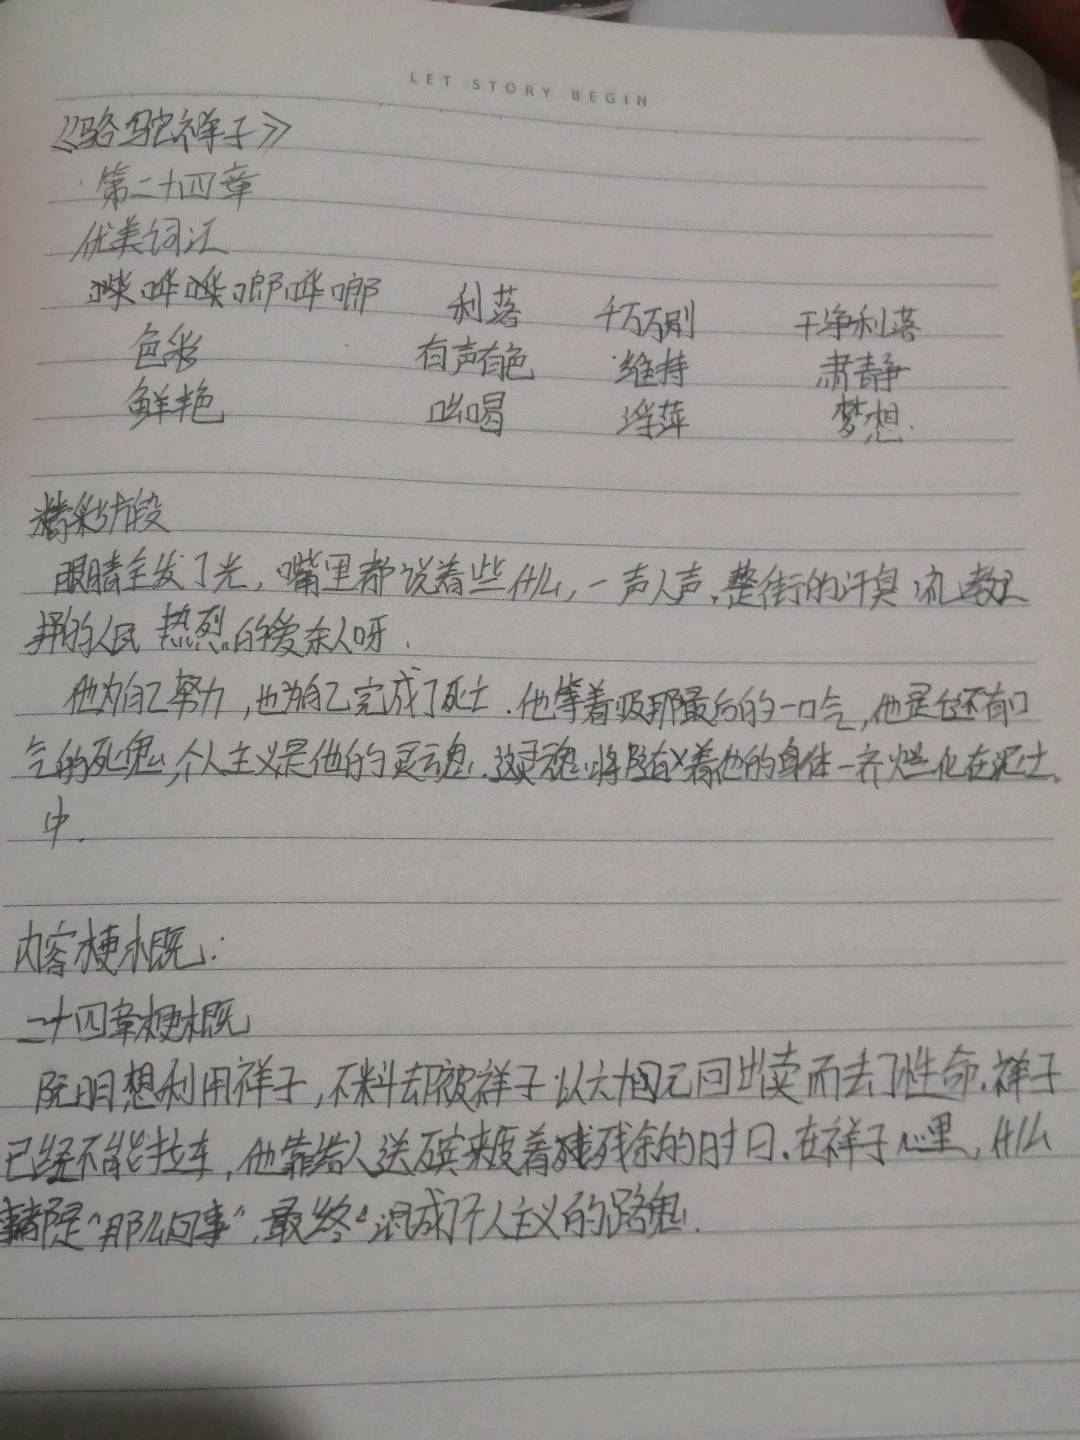 LET STORY BEGIN
《骆驼祥子》
第二十四章
优美词汇
哗哗啷哗啷 利落 千万万剐 干净利落
色彩 有声有色 维持 肃静
鲜艳 吆喝 浮萍 梦想
精彩片段
眼睛全发了光,嘴里都说着些什么,一声人声、整街的汗臭,礼教之
邦的人民 热烈的爱杀人呀.
他为自己努力,也为自己完成了死亡.他等着吸那最后的一口气,他是个还有口
气的死鬼,个人主义是他的灵魂.这灵魂将随着他的身体一齐烂化在泥土
中.
内容梗概:
二十四章梗概
阮明想利用祥子,不料却被祥子以六十四元回出卖而去了性命.祥子
已经不能拉车,他靠给人送殡来度着残余的时日.在祥子心里,什么
事都是"那么回事",最终混成了个人主义的路鬼.